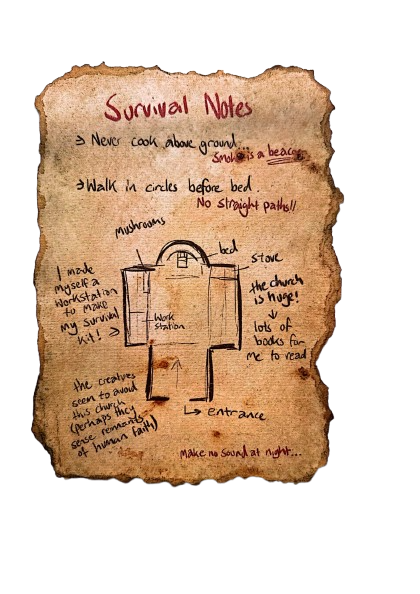 Survival Notes
→ Never cook above ground...
Smoke is a beacon
→ Walk in circles before bed.
No straight paths!!
mushrooms
bed
stove
I made
myself a
workstation
to make
my survival
kit!
the church
is huge!
lots of
books for
me to read
Work
station
the creatures
seem to avoid
this church
(perhaps they
sense remnants
of human faith)
entrance
make no sound at night...